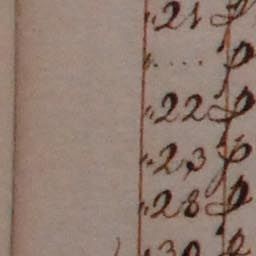 "21 p
".... p
"22 p
"23 p
"28 p
"30